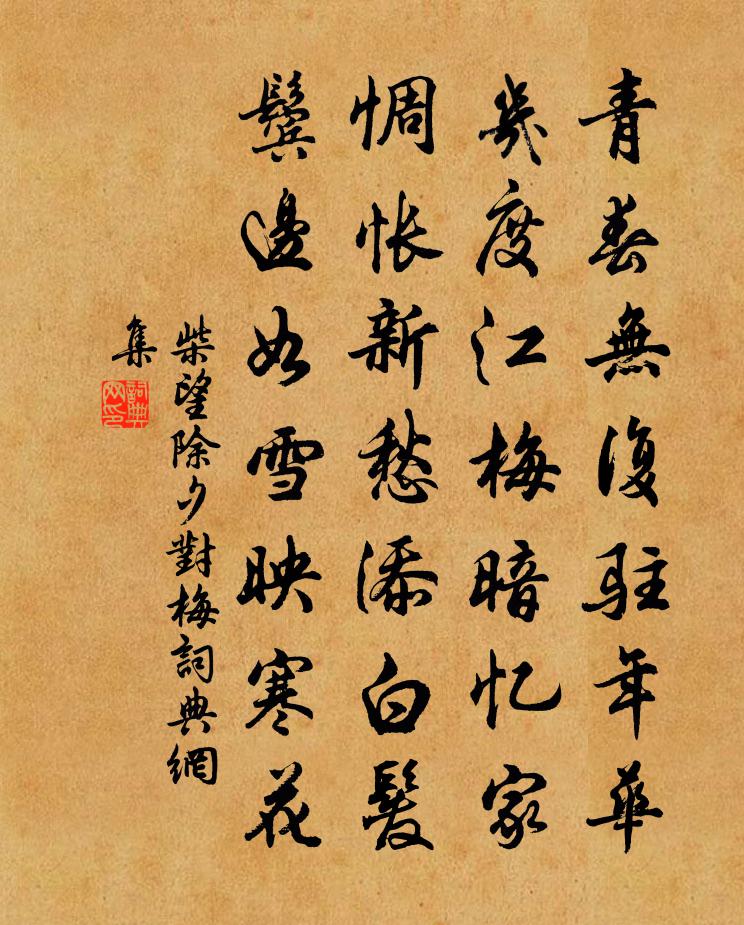 青春無復駐年華
幾度江梅暗忆家
惆怅新愁添白髮
鬓邊如雪映寒花
柴望除夕對梅詞典網
集
詞典
网印